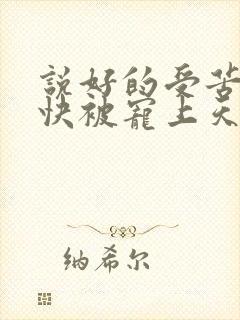 說好的受苦
快被寵上天
纳希尔